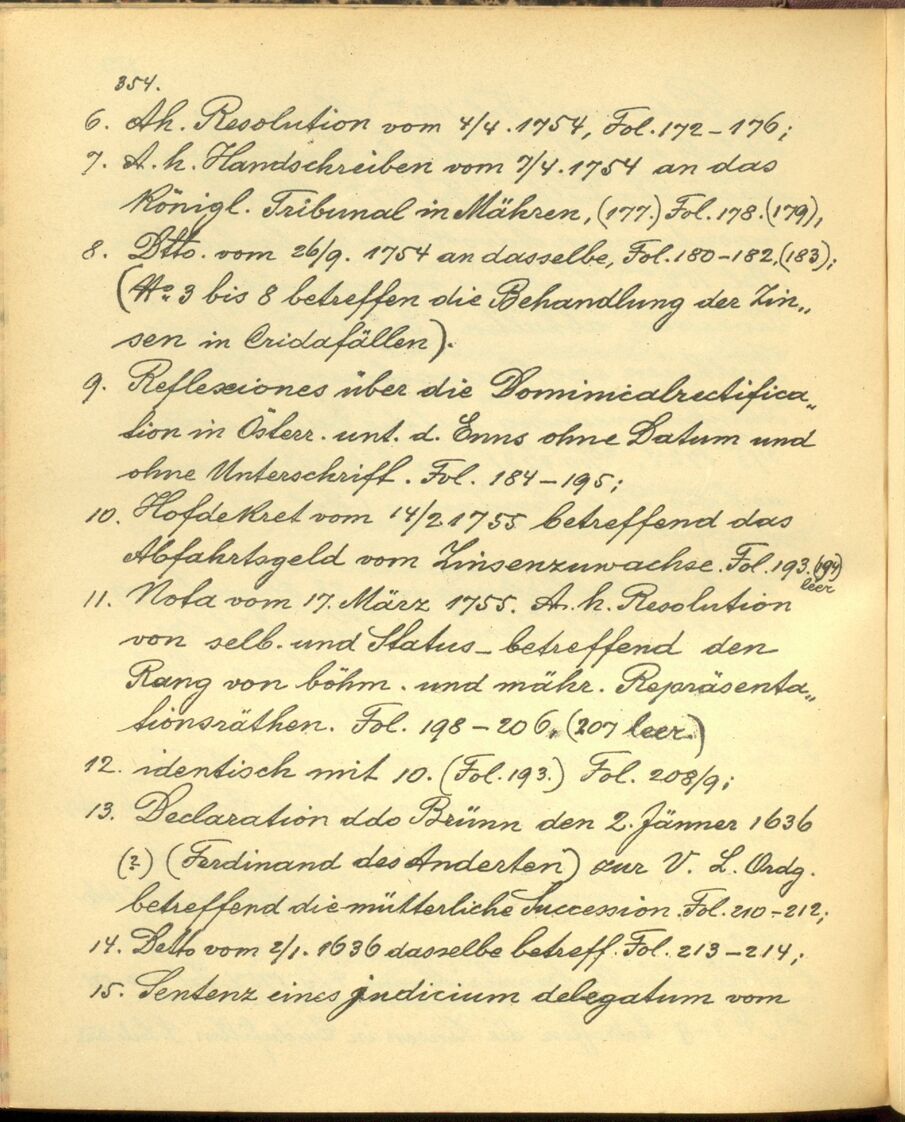 354.
6. Ah. Resolution vom 4/4. 1754, Fol. 172 – 176;
7. A. h. Handschreiben vom 7/4. 1754 an das
Königl. Tribunal in Mähren, (177.) Fol. 178. (179),
8. Dtto. vom 26/9. 1754 an dasselbe, Fol. 180–182, (183);
(No. 3 bis 8 betreffen die Behandlung der Zin„
sen in Cridafällen).
9. Reflexiones über die Dominicalrectifica„
tion in Österr. unt. d. Enns ohne Datum und
ohne Unterschrift. Fol. 184 – 195;
10. Hofdekret vom 14/2 1755 betreffend das
Abfahrtsgeld vom Zinsenzuwachse. Fol. 193. (194)
leer
11. Nota vom 17. März 1755. A. h. Resolution
von selb. und Status – betreffend den
Rang von böhm. und mähr. Repräsenta„
tionsräthen. Fol. 198 – 206, (207 leer.)
12. identisch mit 10. (Fol. 193.) Fol. 208/9;
13. Declaration ddo Brünn den 2. Jänner 1636
(?) (Ferdinand des Anderten) zur V. L. Ordg.
betreffend die mütterliche Succession. Fol. 210–212;
14. Detto vom 2/1. 1636 dasselbe betreff. Fol. 213–214;
15. Sentenz eines judicium delegatum vom